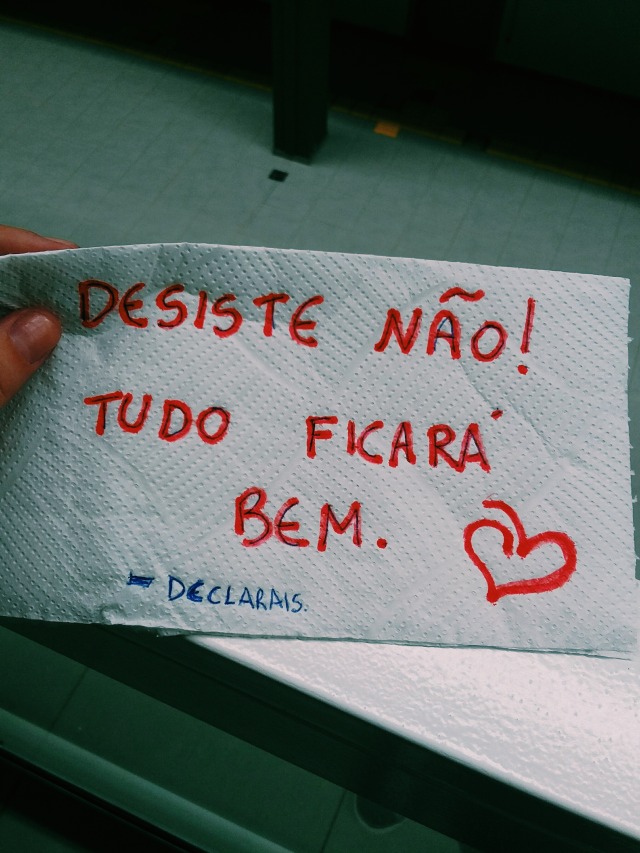 DESISTE NÃO!
TUDO FICARÁ
BEM.
- DECLARAIS.